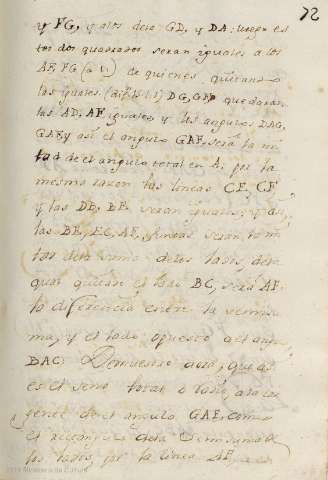 72
y FG, y a los de la GD, y DA: luego es
tos dos quadrados seran iguales a los
AF, FG (a 1) de quienes quitando
los iguales. DG, GF quedaran
las AD, AF iguales y los angulos DAG,
GAF, y asi el angulo GAF, será la mi
tad de el angulo total en A, por la
mesma razon las lineas CE, CF
y las DB, BE seran iguales; y asi,
las BE, EC, AF, lineas seran la mi
tad de la suma de los lados, de la
qual quitan el lado BC, será AF
la diferencia entre la semisu
ma, y el lado opuesto al ang.
BAC: Demuestro aora, que as
es el seno total a la
gente de el angulo GAF, como
el rectangulo de la semisuma de
los lados por la linea AF,